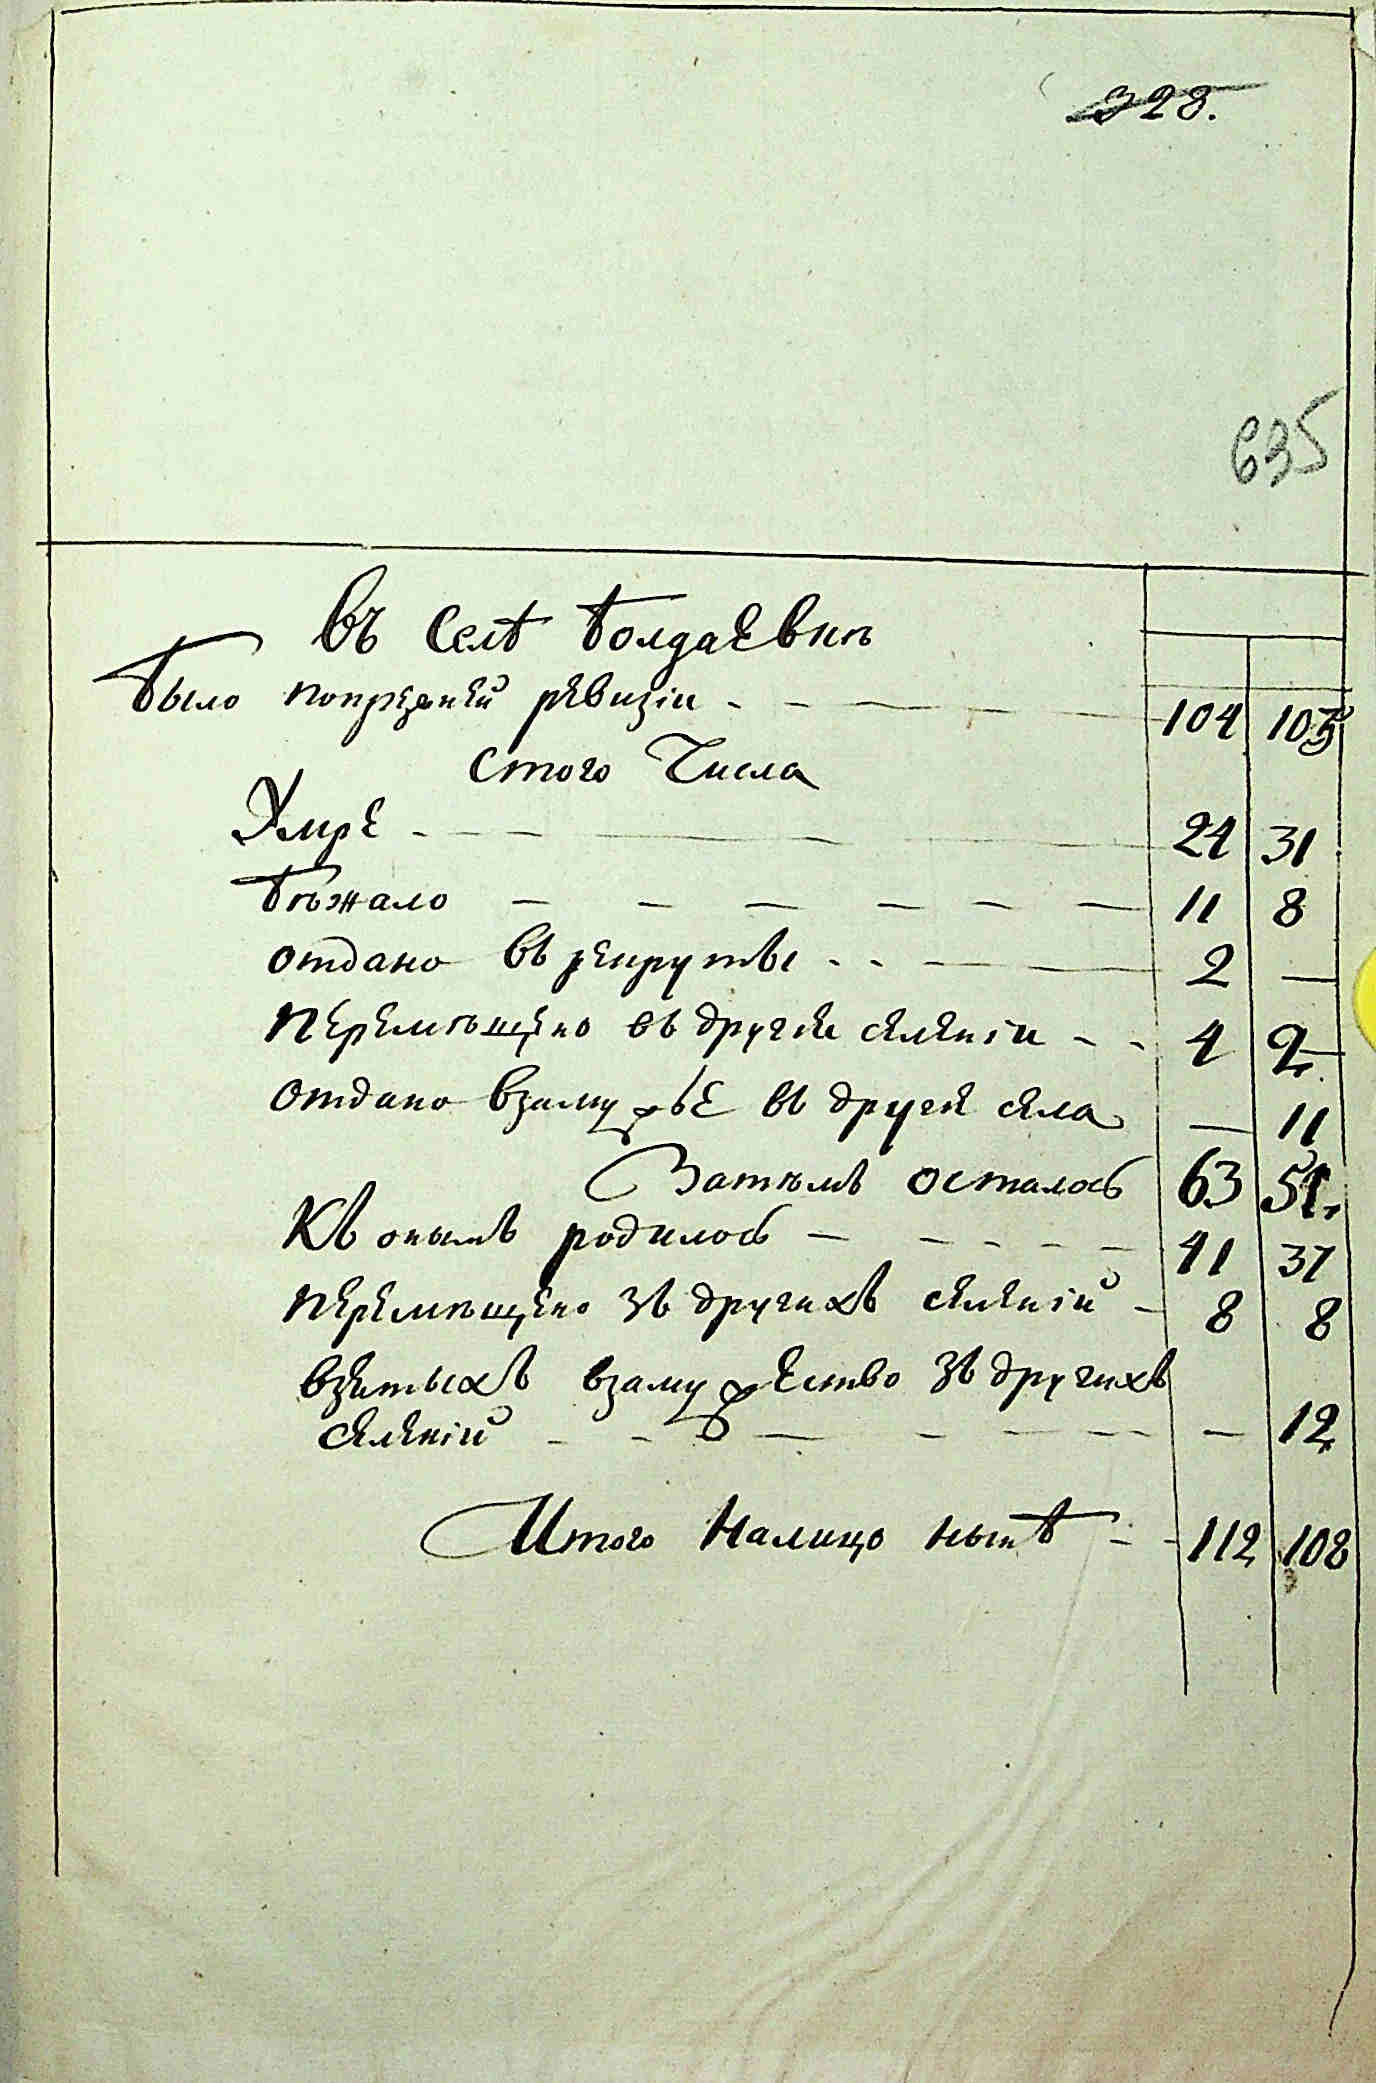 328.
635
Въ Селѣ Болдаевкѣ
Было попрежней ревизіи - - - - - 104 103
Стого Числа
Умре - - - 24 31
Бѣжало - - - - - - 11 8
отдано въ рекруты - - - - 2 —
перемѣщено въ другие селеніи - - 4 2
отдано взамужье въ другие села — 11
Затѣмъ осталось 63 51.
Къ онымъ родилось - - - - - 41 37
перемѣщено зъ другихъ селеній - 8 8
взятыхъ взамужество зъ другихъ
селеній - - - - - - - — 12
Итого Налицо нынѣ - - 112 108